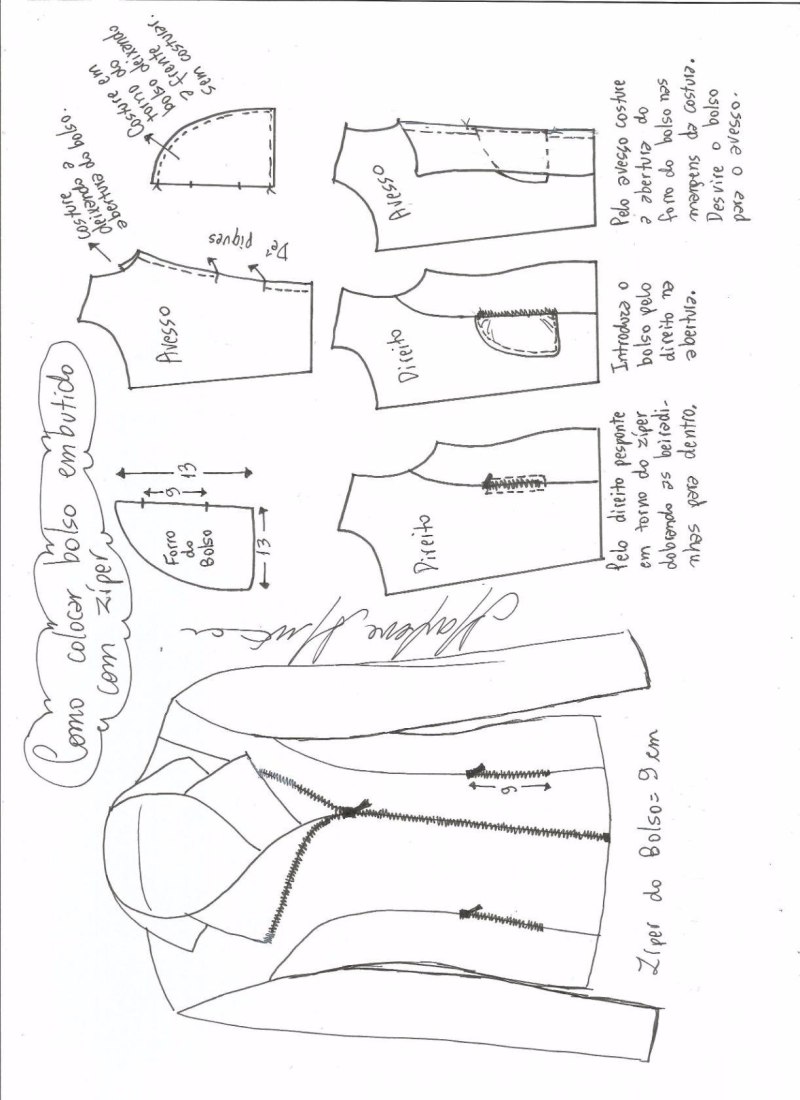 Como colocar bolso embutido
com zíper
Forro
do
Bolso
13
9
13
Avesso
costure
deixando a
abertura do bolso.
Dê
piques
Costure em
torno do
bolso deixando
a frente
sem costurar.
Direito
Pelo direito pesponte
em torno do zíper
dobrando as beiradi-
nhas para dentro.
Direito
Introduza o
bolso pelo
direito na
abertura.
Avesso
Pelo avesso costure
a abertura do
forro do bolso nas
margens da costura.
Desvire o bolso
para o avesso.
Marlene Mukai
9
Zíper do Bolso = 9 cm